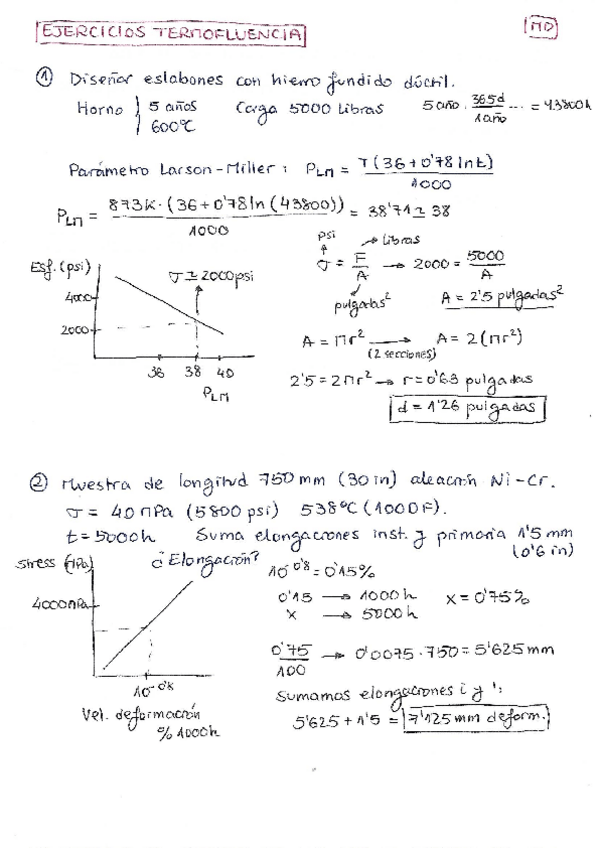 EJERCICIOS TERMOFLUENCIA
MD
① Diseñar eslabones con hierro fundido dúctil.
Horno 5 años Carga 5000 Libras 5 año · 365d / 1 año ... = 43800h
600ºC
Parámetro Larson-Miller: P_LM = T(36+0'78 ln t) / 1000
P_LM = 873K·(36+0'78 ln(43800)) / 1000 = 38'71 ≃ 38
psi → Libras
σ = F/A → 2000 = 5000/A
pulgadas² A = 2'5 pulgadas²
Esf. (psi) σ ≃ 2000 psi
4000
2000
36 38 40
P_LM
A = πr² → A = 2(πr²)
(2 secciones)
2'5 = 2πr² → r = 0'63 pulgadas
d = 1'26 pulgadas
② Muestra de longitud 750 mm (30 in) aleación Ni-Cr.
σ = 40 MPa (5800 psi) 538ºC (1000F).
t = 5000h Suma elongaciones inst. y primaria 1'5 mm
(0'6 in)
¿Elongación?
Stress (MPa)
4000MPa
10^-0'8
Vel. deformación
% 1000h
10^-0'8 = 0'15%
0'15 → 1000h x = 0'75%
x → 5000h
0'75 / 100 → 0'0075·750 = 5'625 mm
Sumamos elongaciones i y 1:
5'625 + 1'5 = 7'125 mm deform.